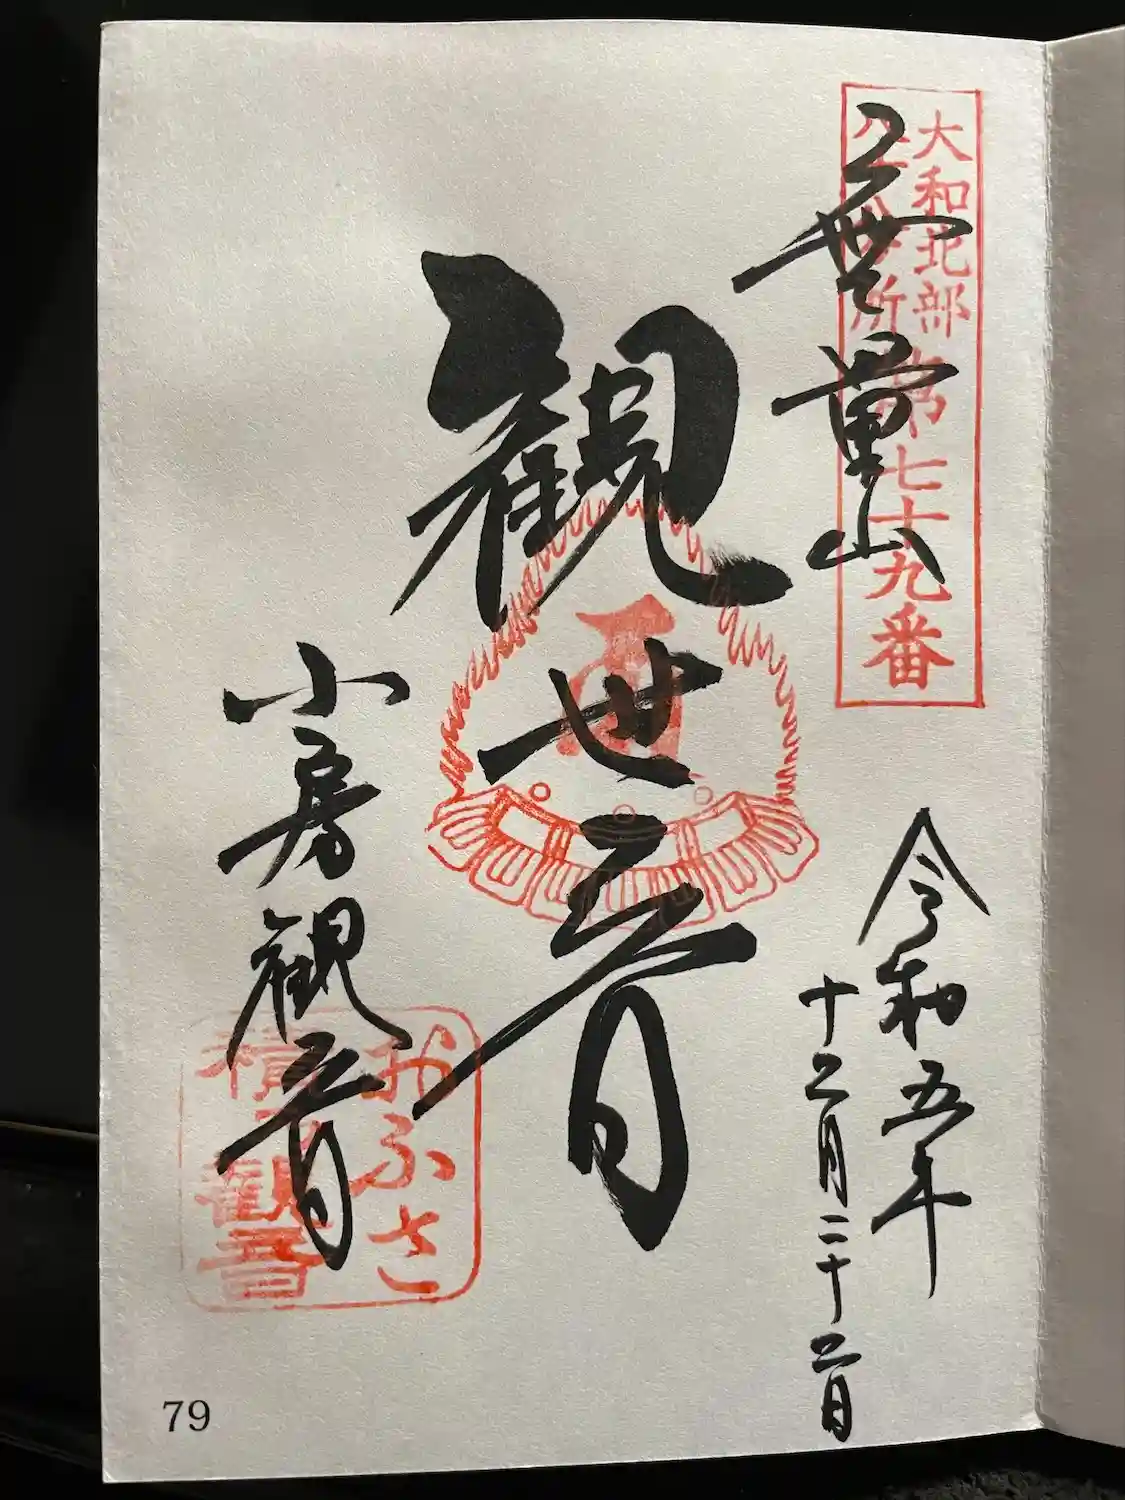 大和北部
八十八ヶ所
第七十九番
無量山
令和五年
十二月二十二日
観世音
小房観音
おふさ
観音
79